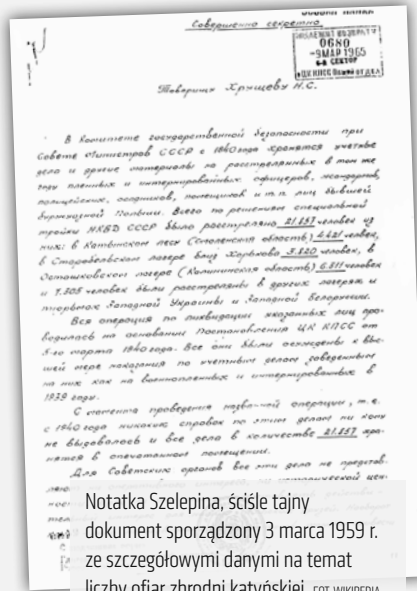 ОСОБАЯ ПАПКА
Совершенно секретно
ПОДЛЕЖИТ ВОЗВРАТУ
0680
-9 МАР 1965
6-й СЕКТОР
ЦК КПСС Общий отдел
Товарищу Хрущеву Н.С.
В Комитете государственной безопасности при
Совете Министров СССР с 1940 года хранятся учетные
дела и другие материалы на расстрелянных в том же
году пленных и интернированных офицеров, жандармов,
полицейских, осадников, помещиков и т.п. лиц бывшей
буржуазной Польши. Всего по решениям специальной
тройки НКВД СССР было расстреляно 21.857 человек, из
них: в Катынском лесу (Смоленская область) 4.421 человек,
в Старобельском лагере близ Харькова 3.820 человек, в
Осташковском лагере (Калининская область) 6.311 человек
и 7.305 человек были расстреляны в других лагерях и
тюрьмах Западной Украины и Западной Белоруссии.
Вся операция по ликвидации указанных лиц про-
водилась на основании Постановления ЦК КПСС от
5-го марта 1940 года. Все они были осуждены к выс-
шей мере наказания по учетным делам заведенным
на них как на военнопленных и интернированных в
1939 году.
С момента проведения названной операции, т.е.
с 1940 года никаких справок по этим делам ни кому
не выдавалось и все дела в количестве 21.857 хра-
нятся в опечатанном помещении.
Для Советских органов все эти дела не представ-
Notatka Szelepina, ściśle tajny
dokument sporządzony 3 marca 1959 r.
ze szczegółowymi danymi na temat
liczby ofiar zbrodni katyńskiej. FOT. WIKIPEDIA